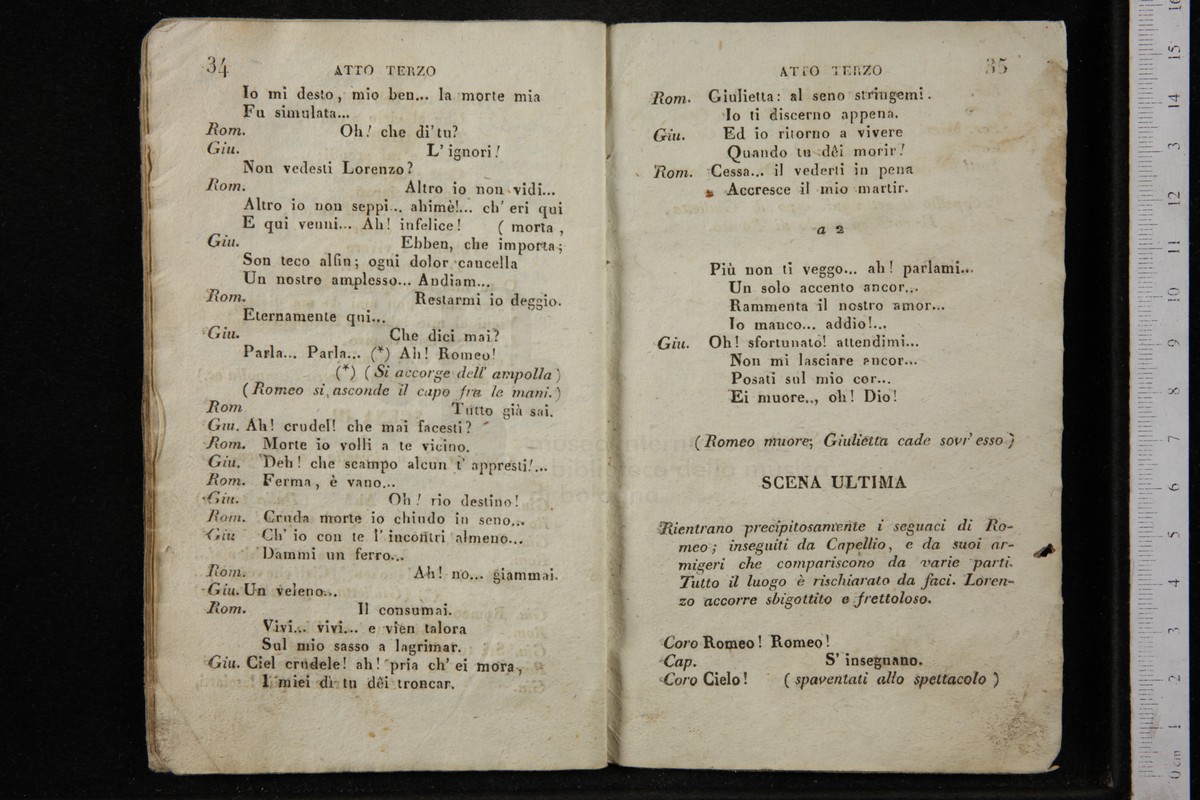 34
ATTO TERZO
Io mi desto, mio ben... la morte mia
Fu simulata...
Rom. Oh! che di' tu?
Giu. L' ignori!
Non vedesti Lorenzo?
Rom. Altro io non vidi...
Altro io non seppi... ahimè!... ch' eri qui
E qui venni... Ah! infelice! ( morta ,
Giu. Ebben, che importa;
Son teco alfin; ogni dolor cancella
Un nostro amplesso... Andiam...
Rom. Restarmi io deggio.
Eternamente qui...
Giu. Che dici mai?
Parla... Parla... (*) Ah! Romeo!
(*) ( Si accorge dell' ampolla )
( Romeo si asconde il capo fra le mani. )
Rom Tutto già sai.
Giu. Ah! crudel! che mai facesti?
Rom. Morte io volli a te vicino.
Giu. Deh! che scampo alcun t' appresti!...
Rom. Ferma, è vano...
Giu. Oh! rio destino!
Rom. Cruda morte io chiudo in seno...
Giu Ch' io con te l' incontri almeno...
Dammi un ferro...
Rom. Ah! no... giammai.
Giu. Un veleno...
Rom. Il consumai.
Vivi... vivi... e vien talora
Sul mio sasso a lagrimar.
Giu. Ciel crudele! ah! pria ch' ei mora,
I miei dì tu dêi troncar.
ATTO TERZO
35
Rom. Giulietta: al seno stringemi.
Io ti discerno appena.
Giu. Ed io ritorno a vivere
Quando tu dêi morir!
Rom. Cessa... il vederti in pena
Accresce il mio martir.
a 2
Più non ti veggo... ah! parlami...
Un solo accento ancor...
Rammenta il nostro amor...
Io manco... addio!...
Giu. Oh! sfortunato! attendimi...
Non mi lasciare ancor...
Posati sul mio cor...
Ei muore.., oh! Dio!
( Romeo muore; Giulietta cade sovr' esso )
SCENA ULTIMA
Rientrano precipitosamente i seguaci di Ro-
meo; inseguiti da Capellio, e da suoi ar-
migeri che compariscono da varie parti.
Tutto il luogo è rischiarato da faci. Loren-
zo accorre sbigottito e frettoloso.
Coro Romeo! Romeo!
Cap. S' inseguano.
Coro Cielo! ( spaventati allo spettacolo )
museo internazionale
biblioteca della musica
di bologna
0 cm 1 2 3 4 5 6 7 8 9 10 11 12 13 14 15 16